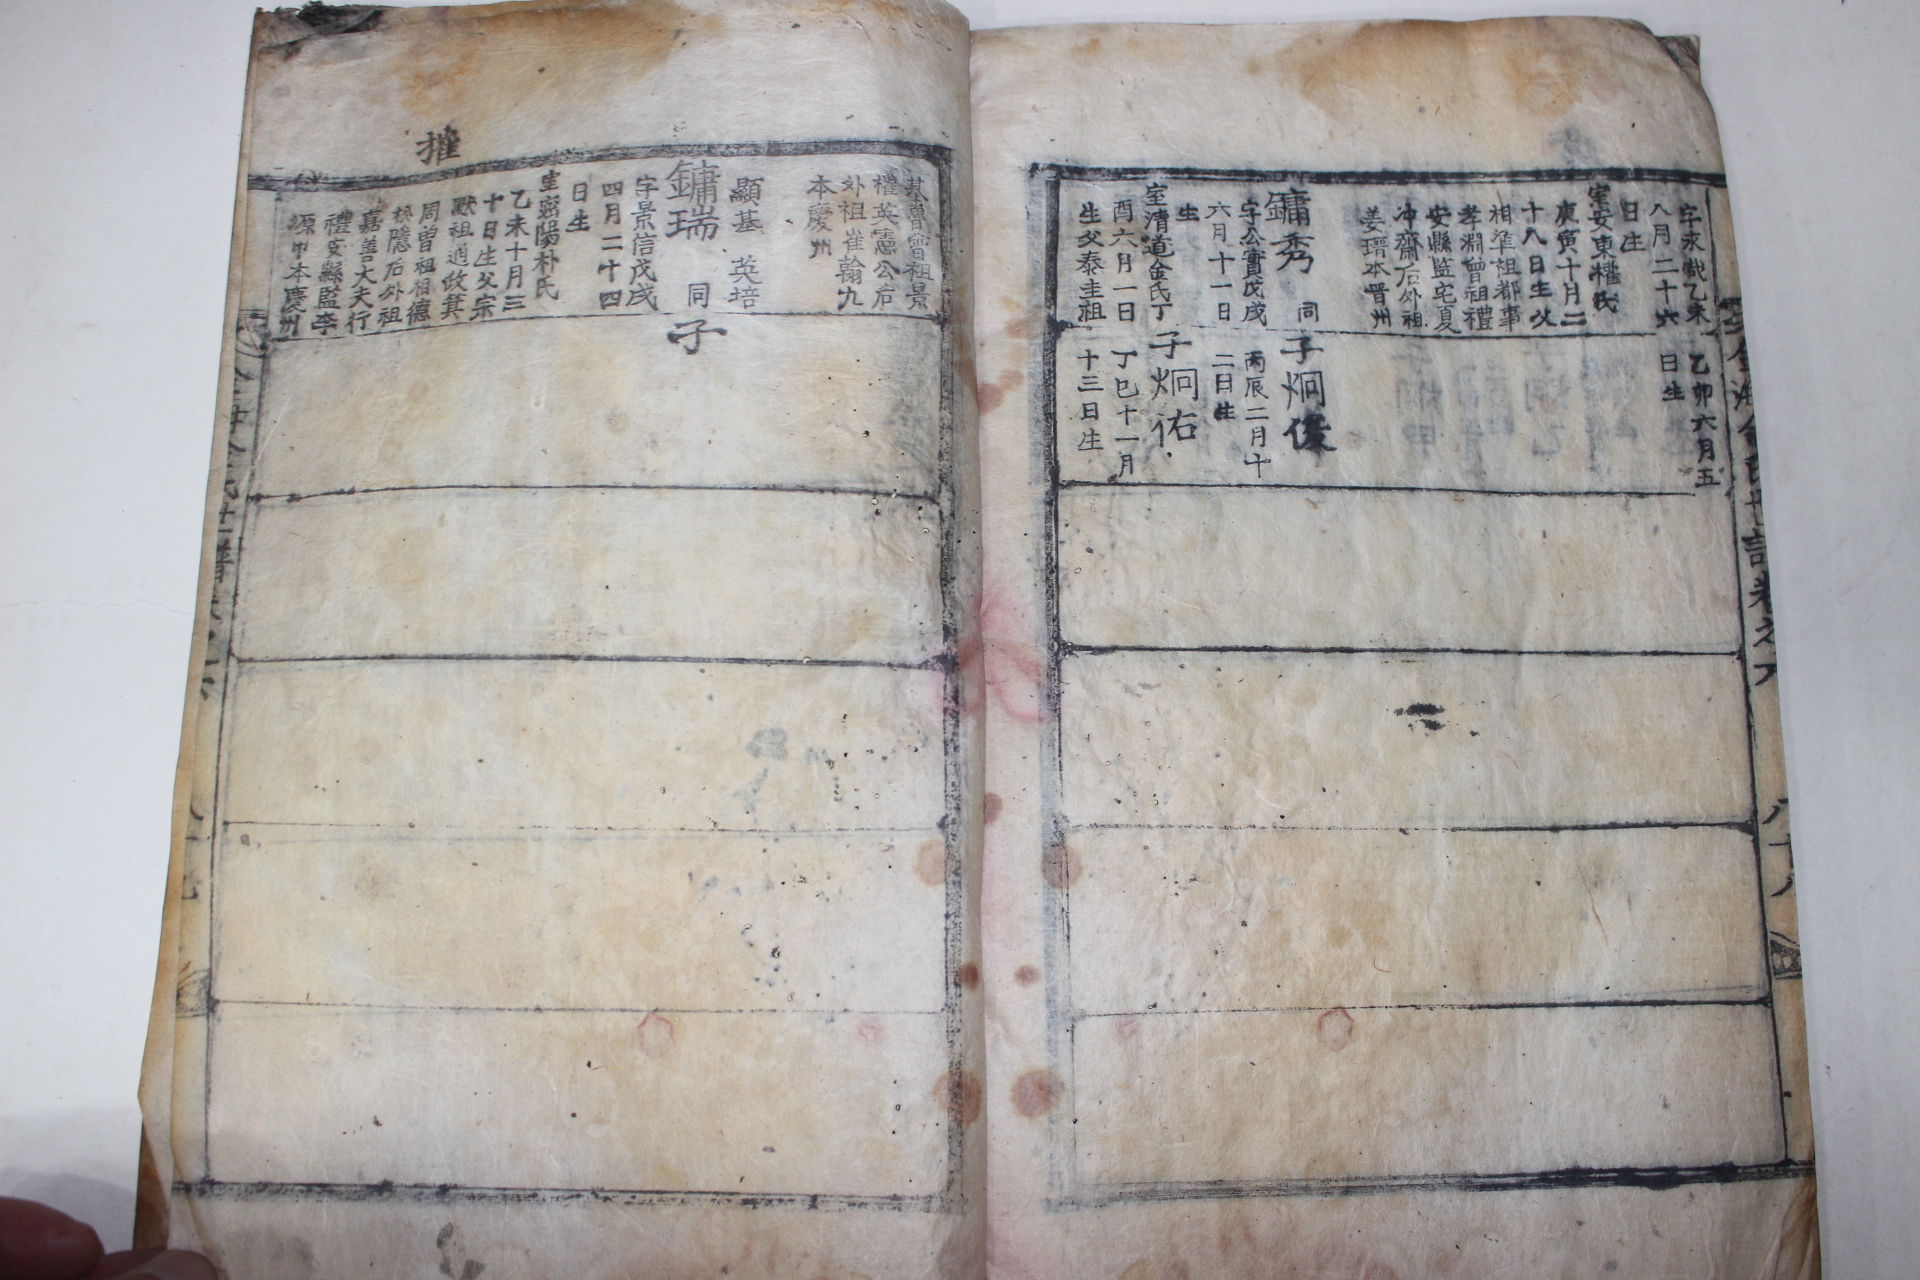 字永哉乙未
八月二十六
日生
室安東權氏
庚寅十月二
十八日生父
相準祖都事
孝淵曾祖禮
安縣監宅夏
冲齋后外祖
姜瑨本晋州
鏞秀 同
字公實戊戌
六月十一日
生
室淸道金氏丁
酉六月一日
生父泰圭祖
乙卯六月五
日生
子炯俊
丙辰二月十
二日生
子炯佑
丁巳十一月
十三日生
金海金氏世譜卷之六
八十八
基魯曾祖景
權英憲公后
外祖崔翰九
本慶州
顯基 英培
鏞瑞 同
字景信戊戌
四月二十四
日生
室密陽朴氏
乙未十月三
十日生父宗
默祖通政箕
周曾祖相德
松隱后外祖
嘉善大夫行
禮安縣監李
源中本慶州
子
摧